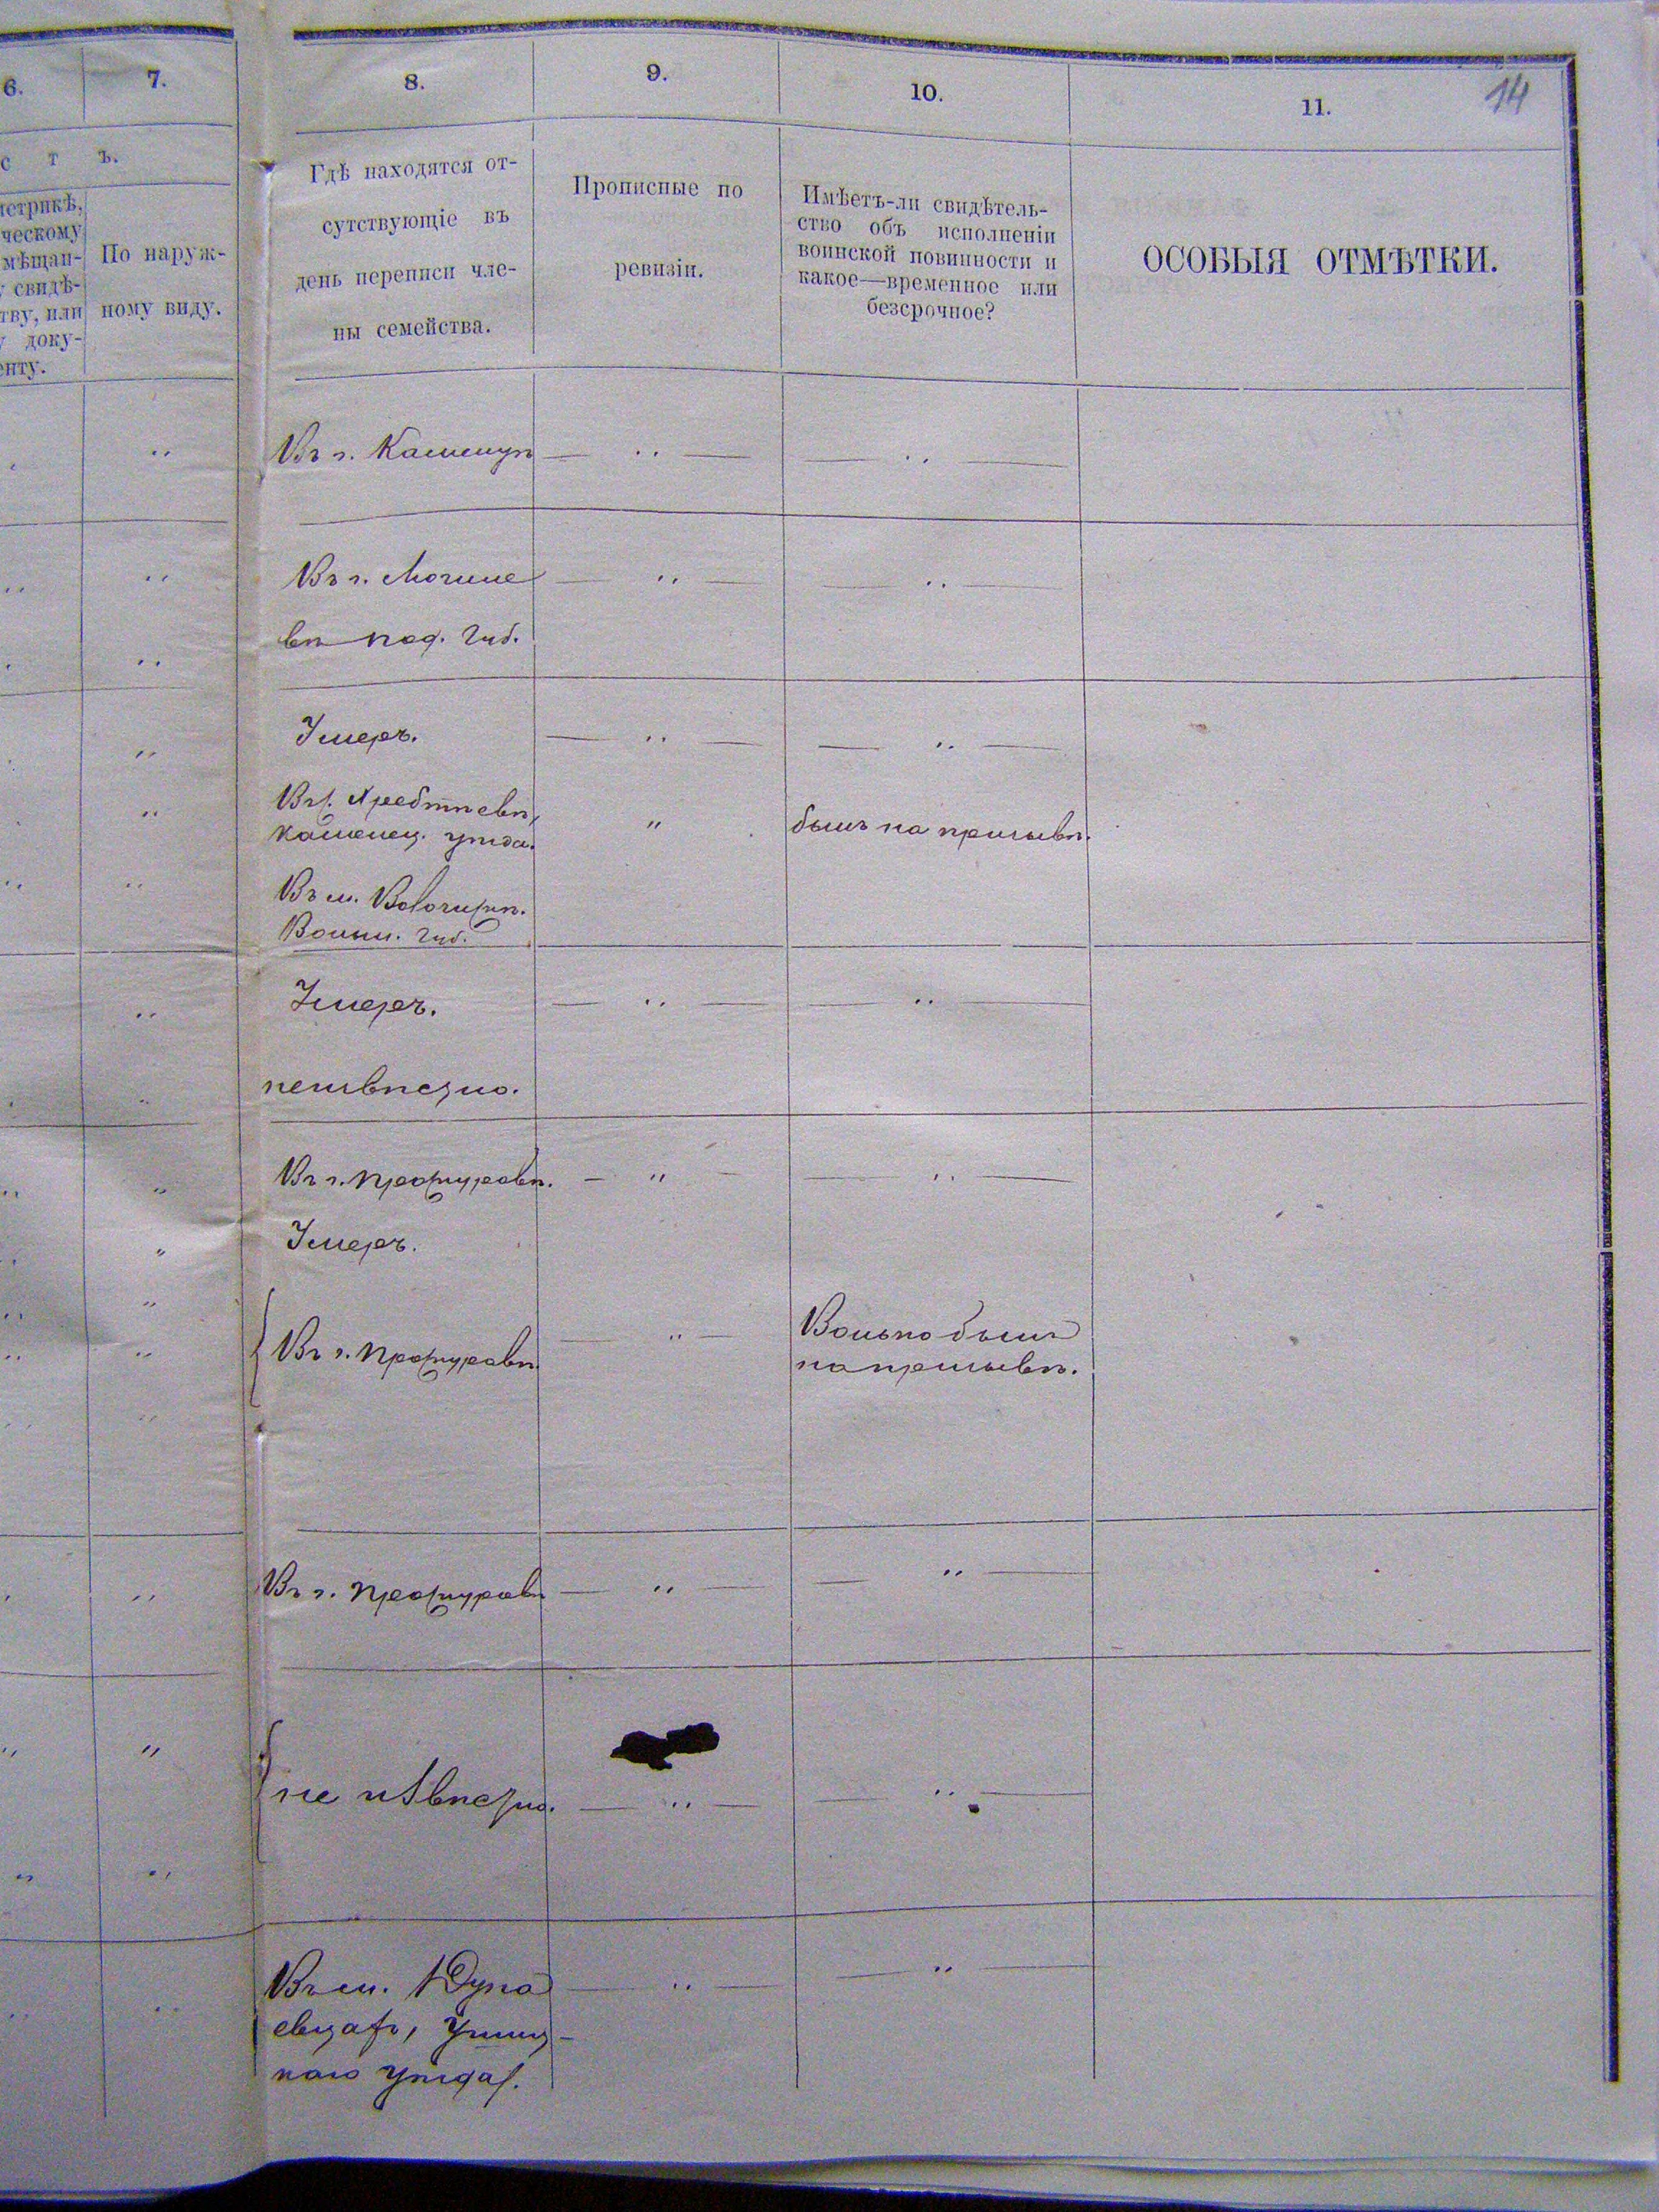 6.
7.
8.
9.
10.
11.
14
с т ъ.
метрикѣ,
ческому
мѣщан-
у свидѣ-
тву, или
у доку-
енту.
По наруж-
ному виду.
Гдѣ находятся от-
сутствующіе въ
день переписи чле-
ны семейства.
Прописные по
ревизіи.
Имѣетъ-ли свидѣтель-
ство объ исполненіи
воинской повинности и
какое—временное или
безсрочное?
ОСОБЫЯ ОТМѢТКИ.
Въ г. Каменцѣ
Въ г. Могиле
вѣ под. Губ.
Умеръ.
Въ с. Хребтіевѣ,
Каменец. уѣзда.
былъ на призывѣ.
Въ м. Волочискѣ.
Волын. Губ.
Умеръ.
неизвѣстно.
Въ г. Проскуровѣ.
Умеръ.
Въ г. Проскуровѣ
Волько былъ
на призывѣ.
Въ г. Проскуровѣ
не извѣстно.
Въ м. Дуна
евцахъ, Ушиц-
каго уѣзда.